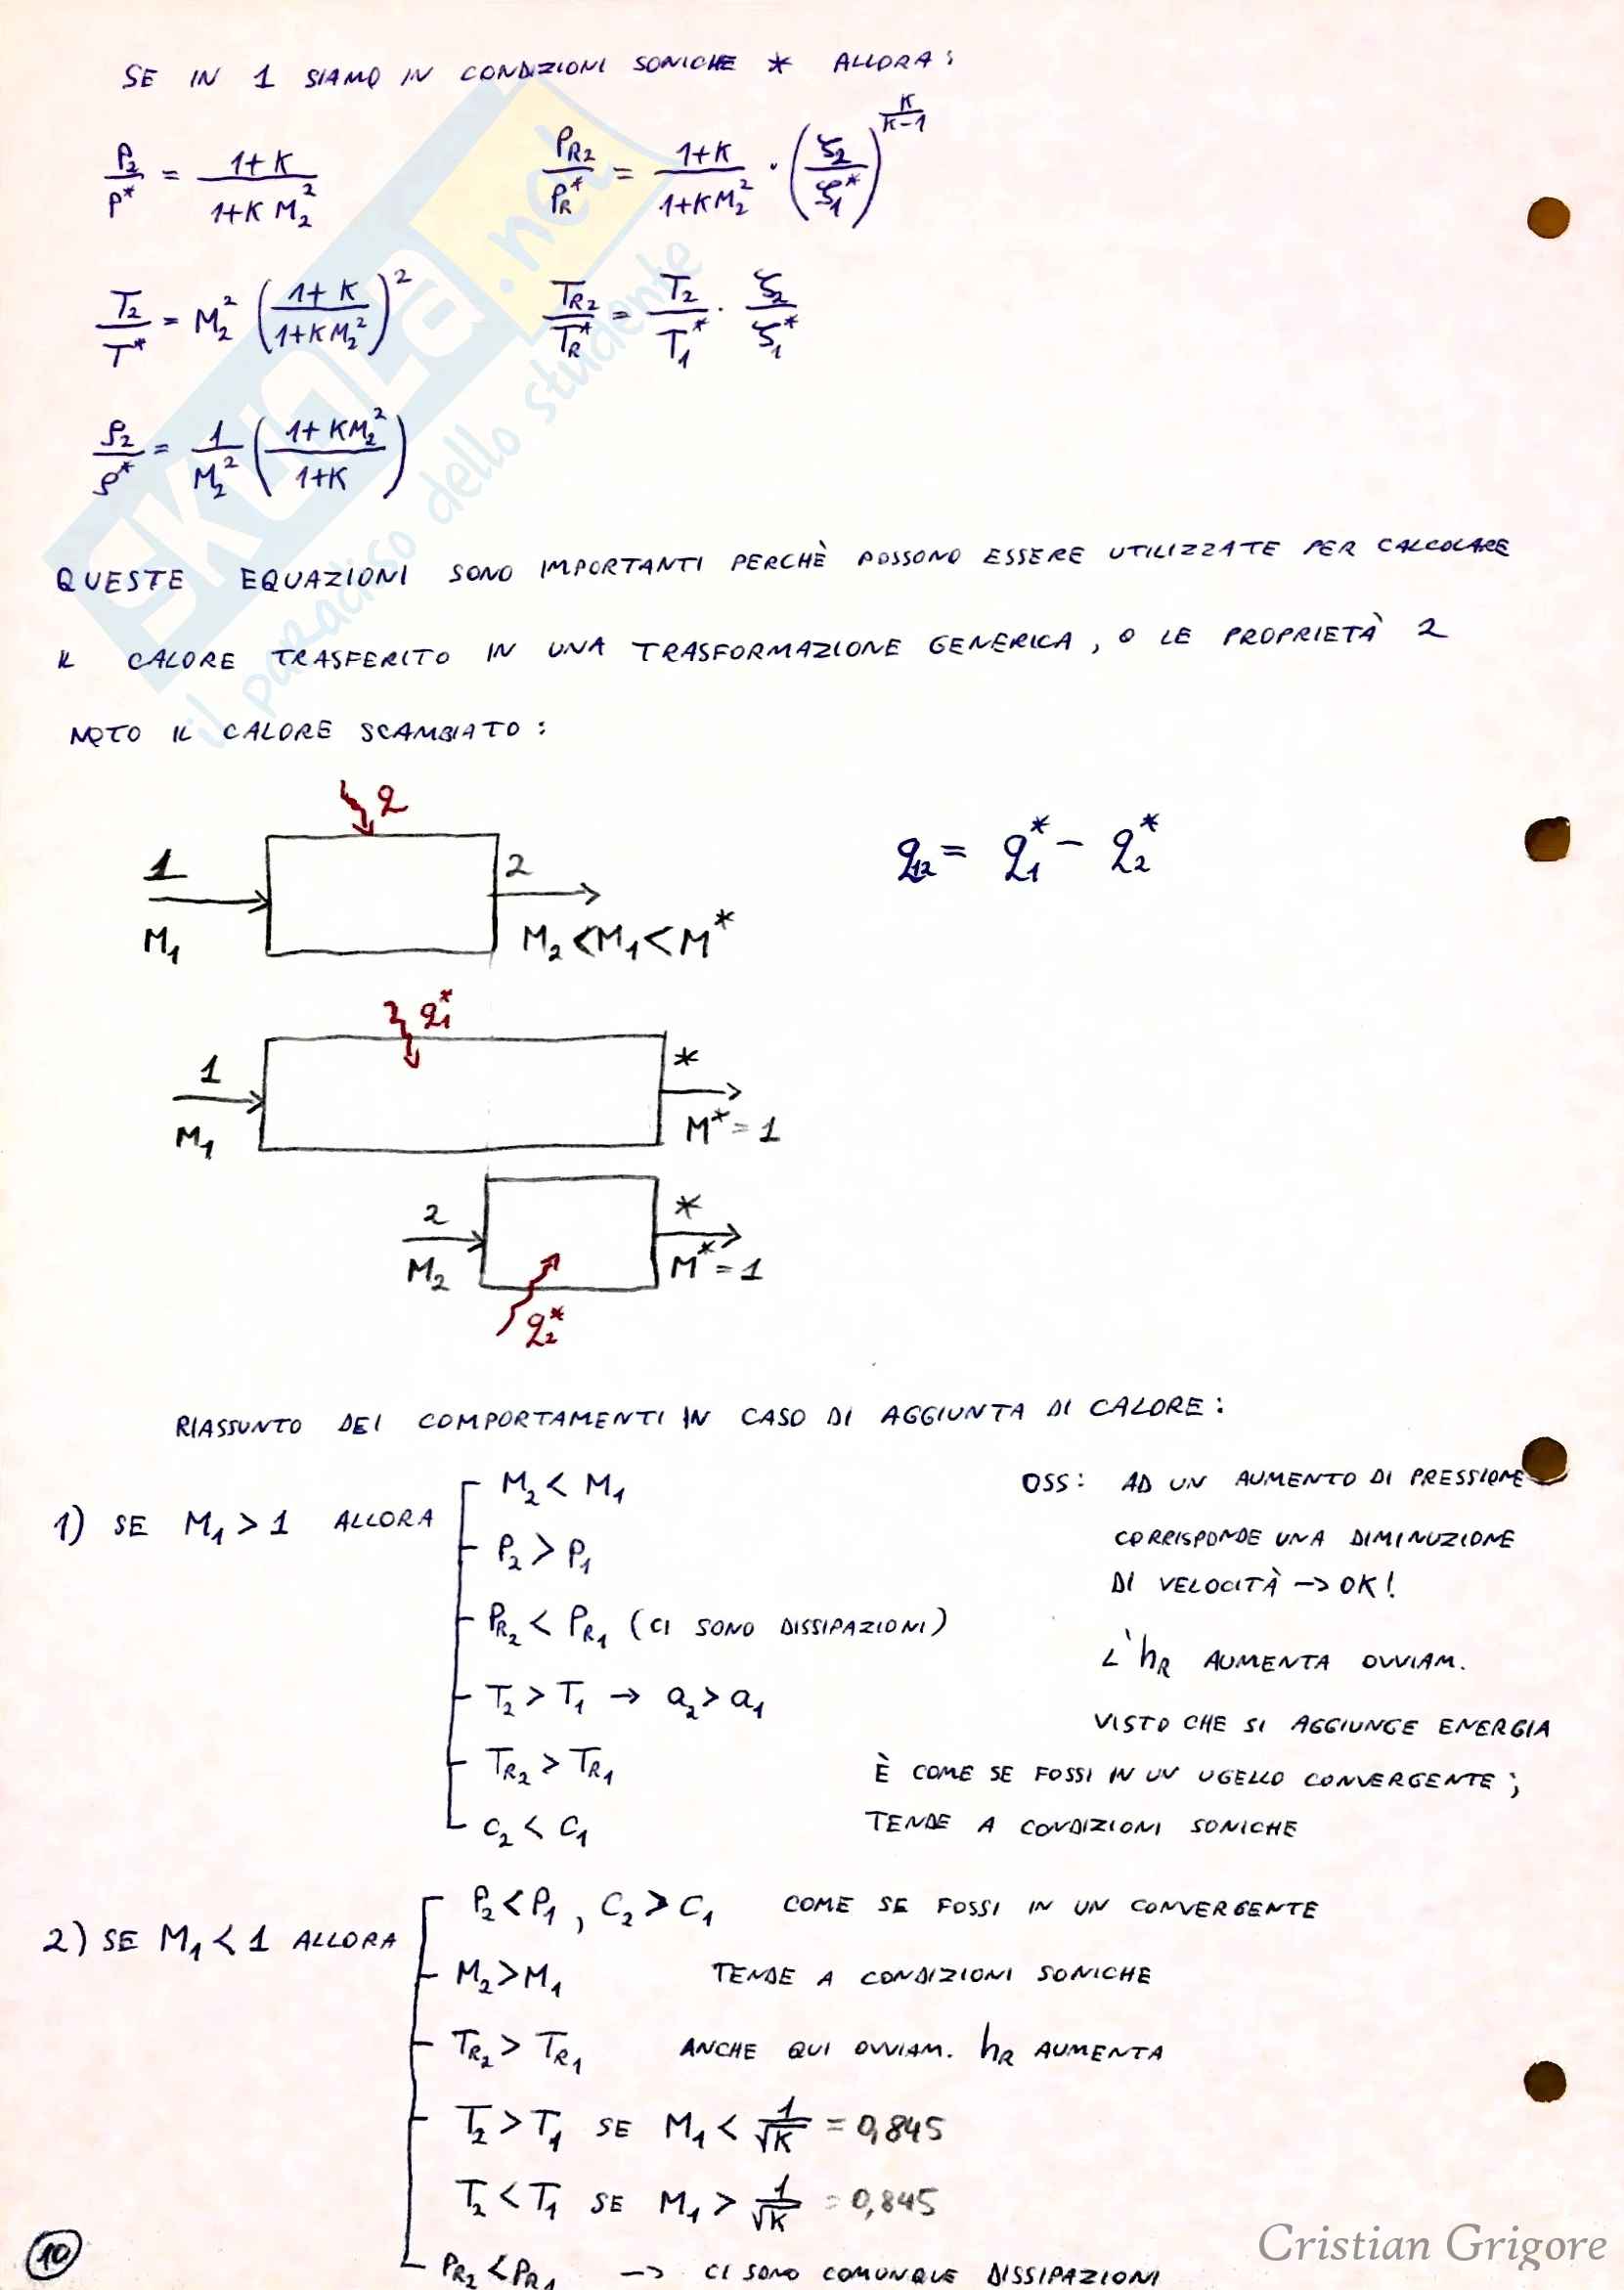 SE IN 1 SIAMO IN CONDIZIONI SONICHE * ALLORA:
P₂/P* = (1+K)/(1+K M₂²)    P_R2/P_R* = (1+K)/(1+KM₂²) · (ζ₂/ζ₁*)^(K/(K-1))
T₂/T* = M₂² ((1+K)/(1+KM₂²))²    T_R2/T_R* = T₂/T₁* · ζ₂/ζ₁*
ρ₂/ρ* = 1/M₂² ((1+KM₂²)/(1+K))
QUESTE EQUAZIONI SONO IMPORTANTI PERCHÈ POSSONO ESSERE UTILIZZATE PER CALCOLARE
IL CALORE TRASFERITO IN UNA TRASFORMAZIONE GENERICA, O LE PROPRIETÀ 2
NOTO IL CALORE SCAMBIATO:
q
1 2
M₁ M₂<M₁<M*
q₁₂ = q₁* - q₂*
q₁*
1 *
M₁ M*=1
2 *
M₂ M*=1
q₂*
RIASSUNTO DEI COMPORTAMENTI IN CASO DI AGGIUNTA DI CALORE:
1) SE M₁>1 ALLORA
M₂<M₁
P₂>P₁
P_R2<P_R1 (CI SONO DISSIPAZIONI)
T₂>T₁ → a₂>a₁
T_R2>T_R1
C₂<C₁
OSS: AD UN AUMENTO DI PRESSIONE
CORRISPONDE UNA DIMINUZIONE
DI VELOCITÀ -> OK!
L'h_R AUMENTA OVVIAM.
VISTO CHE SI AGGIUNGE ENERGIA
È COME SE FOSSI IN UN UGELLO CONVERGENTE;
TENDE A CONDIZIONI SONICHE
2) SE M₁<1 ALLORA
P₂<P₁, C₂>C₁ COME SE FOSSI IN UN CONVERGENTE
M₂>M₁ TENDE A CONDIZIONI SONICHE
T_R2>T_R1 ANCHE QUI OVVIAM. h_R AUMENTA
T₂>T₁ SE M₁ < 1/√K = 0,845
T₂<T₁ SE M₁ > 1/√K = 0,845
P_R2<P_R1 -> CI SONO COMUNQUE DISSIPAZIONI
10
Cristian Grigore
SKUOLA.net
il paradiso dello studente